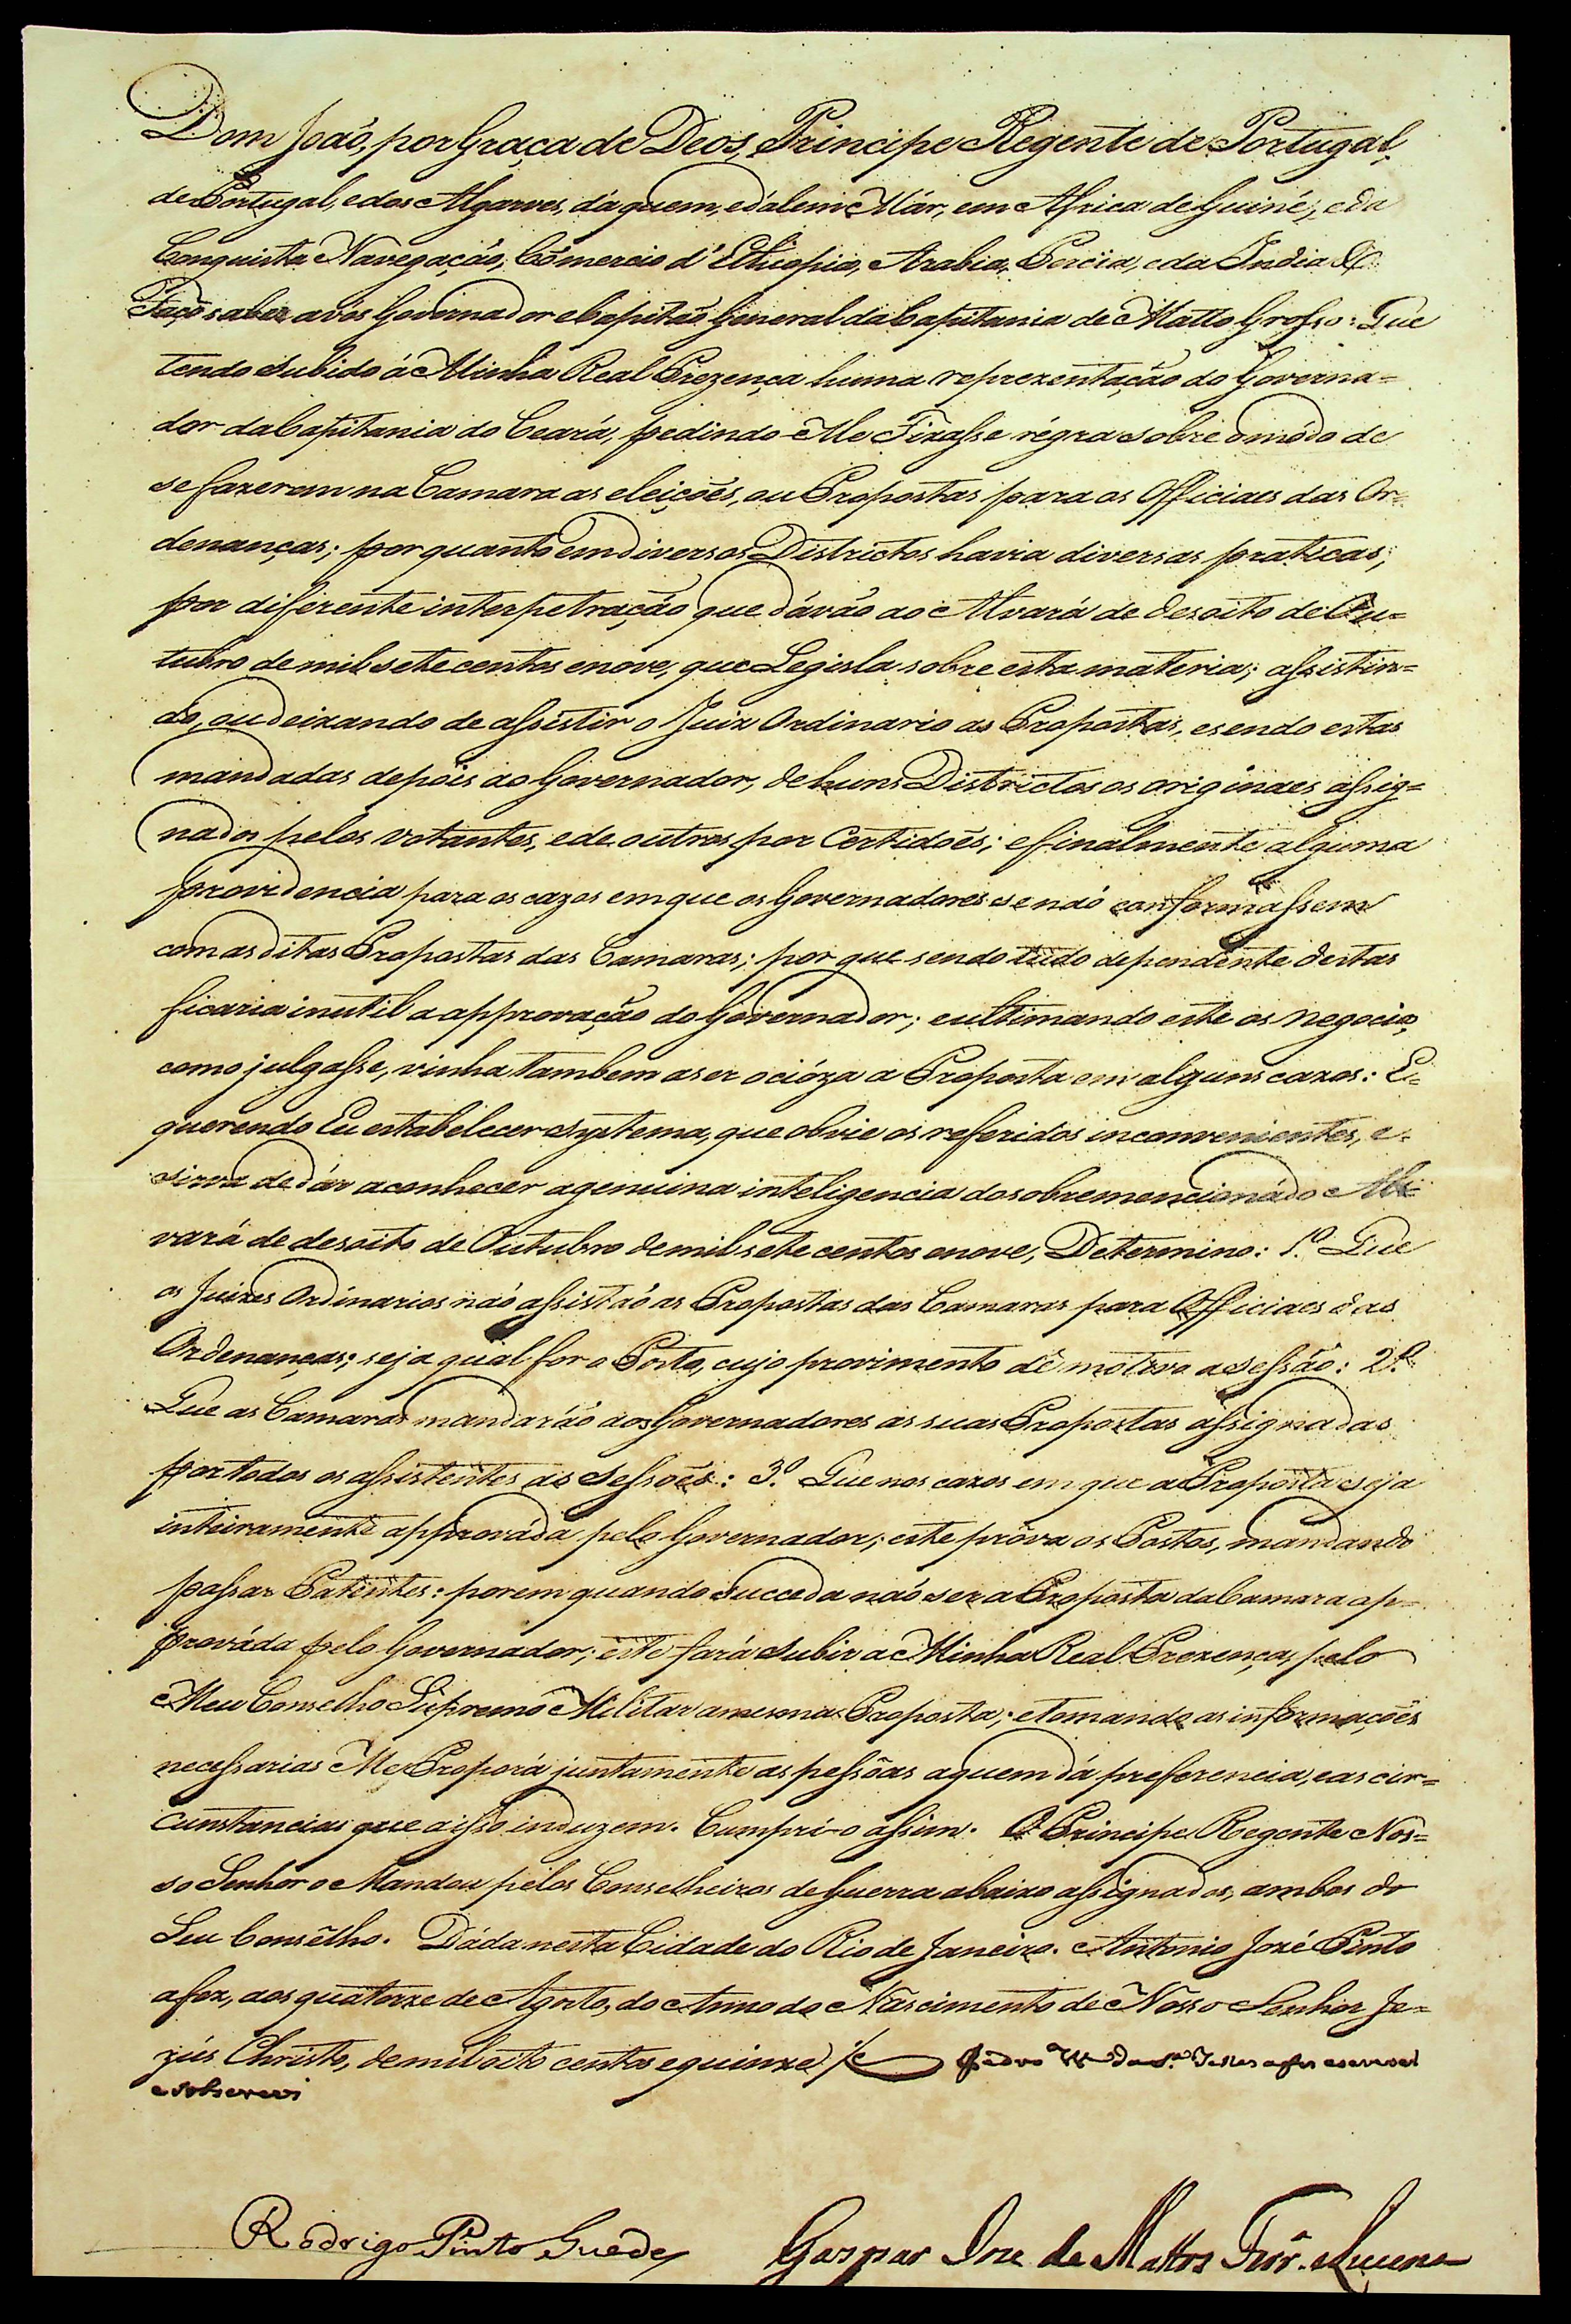 Dom João, por Graça de Deos, Principe Regente de Portugal,
de Portugal, e dos Algarves, d'aquem, e d'alem Már, em Africa de Guiné, e da
Conquista, Navegação, Comercio d'Ethiopia, Arabia, Percia, e da India &c.
Faço saber a vós Governador e Capitão General da Capitania de Matto Grosso: Que
tendo subido á Minha Real Prezença huma reprezentação do Governa=
dor da Capitania do Ceará, pedindo-Me Fixasse régra sobre o módo de
se fazerem na Camara as eleições, ou Propostas para os Officiaes das Or=
denanças; por quanto em diversos Districtos havia diversas praticas,
por diferente interpetração que dávão ao Alvará de desoito de Ou=
tubro de mil setecentos e nove, que Legisla sobre esta materia; assistin=
do, ou deixando de assistir o Juiz Ordinario as Propostas, e sendo estas
mandadas depois ao Governador, de huns Districtos os originaes assig=
nados pelos votantes, e de outros por Certidoẽs; e finalmente alguma
providencia para os cazos em que os Governadores se não conformassem
com as ditas Propostas das Camaras; por que sendo tudo dependente destas
ficaria inutil a approvação do Governador; e ultimando este os negocios
como julgasse, vinha tambem a ser ocióza a Proposta em alguns cazos: E
querendo Eu estabelecer systema, que obvie os referidos inconvenientes, e
sirva de dár a conhecer a genuina inteligencia do sobremencionádo Al=
vará de desoito de Outubro de mil sete centos e nove, Determino: 1.º Que
os Juizes Ordinarios não assistão as Propostas das Camaras para Officiaes das
Ordenanças; seja qual for o Posto, cujo provimento dê motivo a Sessão: 2.º
Que as Camaras mandarão aos Governadores as suas Propostas assignadas
por todos os assistentes ás Sessoẽs: 3.º Que nos cazos em que a Proposta seja
inteiramente approváda pelo Governador; este próva os Postos, mandando
passar Patentes: porem quando succeda não ser a Proposta da Camara ap=
prováda pelo Governador; este fará subir a Minha Real Prezença, pelo
Meu Conselho Supremo Militar a mesma Proposta; e tomando as informaçoẽs
necessarias Me Proporá juntamente as pessôas a quem dá preferencia, e as cir=
cunstancias que a isso induzem. Cumpri-o assim. O Principe Regente Nos=
so Senhor o Mandou pelos Conselheiros de Guerra abaixo assignados, ambos do
Seu Consêlho. Dáda nesta Cidade do Rio de Janeiro. Antonio José Pinto
a fez, aos quatorze de Agosto, do Anno do Nascimento de Nosso Senhor Je=
zús Christo, de mil oito centos e quinze.
e sobscrevi
Rodrigo Pinto Guedes
Gaspar Joze de Mattos Ferr.ª e Lucena